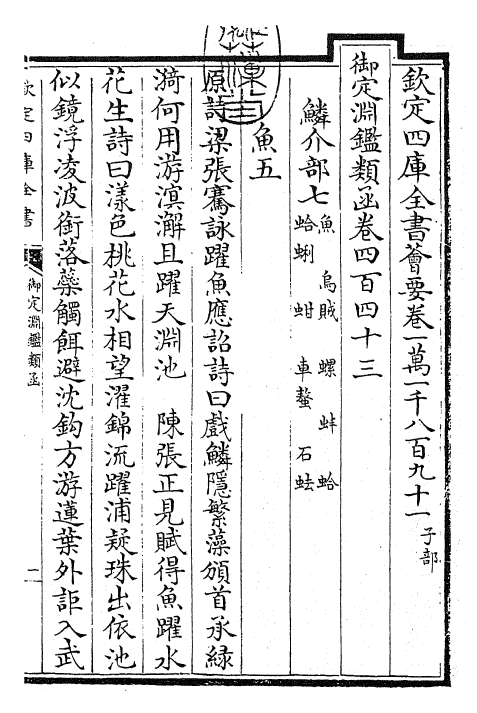 欽定四庫全書薈要卷一萬一千八百九十一 子部
御定淵鑑類函卷四百四十三
鱗介部七 魚 烏賊 螺 蚌 蛤
蛤蜊 蚶 車螯 石蚨
魚五
原詩梁張騫詠躍魚應詔詩曰戲鱗隱繁藻頒首承緑
漪何用游溟澥且躍天淵池 陳張正見賦得魚躍水
花生詩曰漾色桃花水相望濯錦流躍浦疑珠出依池
似鏡浮凌波銜落蘂觸餌避沈鈎方游蓮葉外詎入武
欽定四庫全書
御定淵鑑類函
一